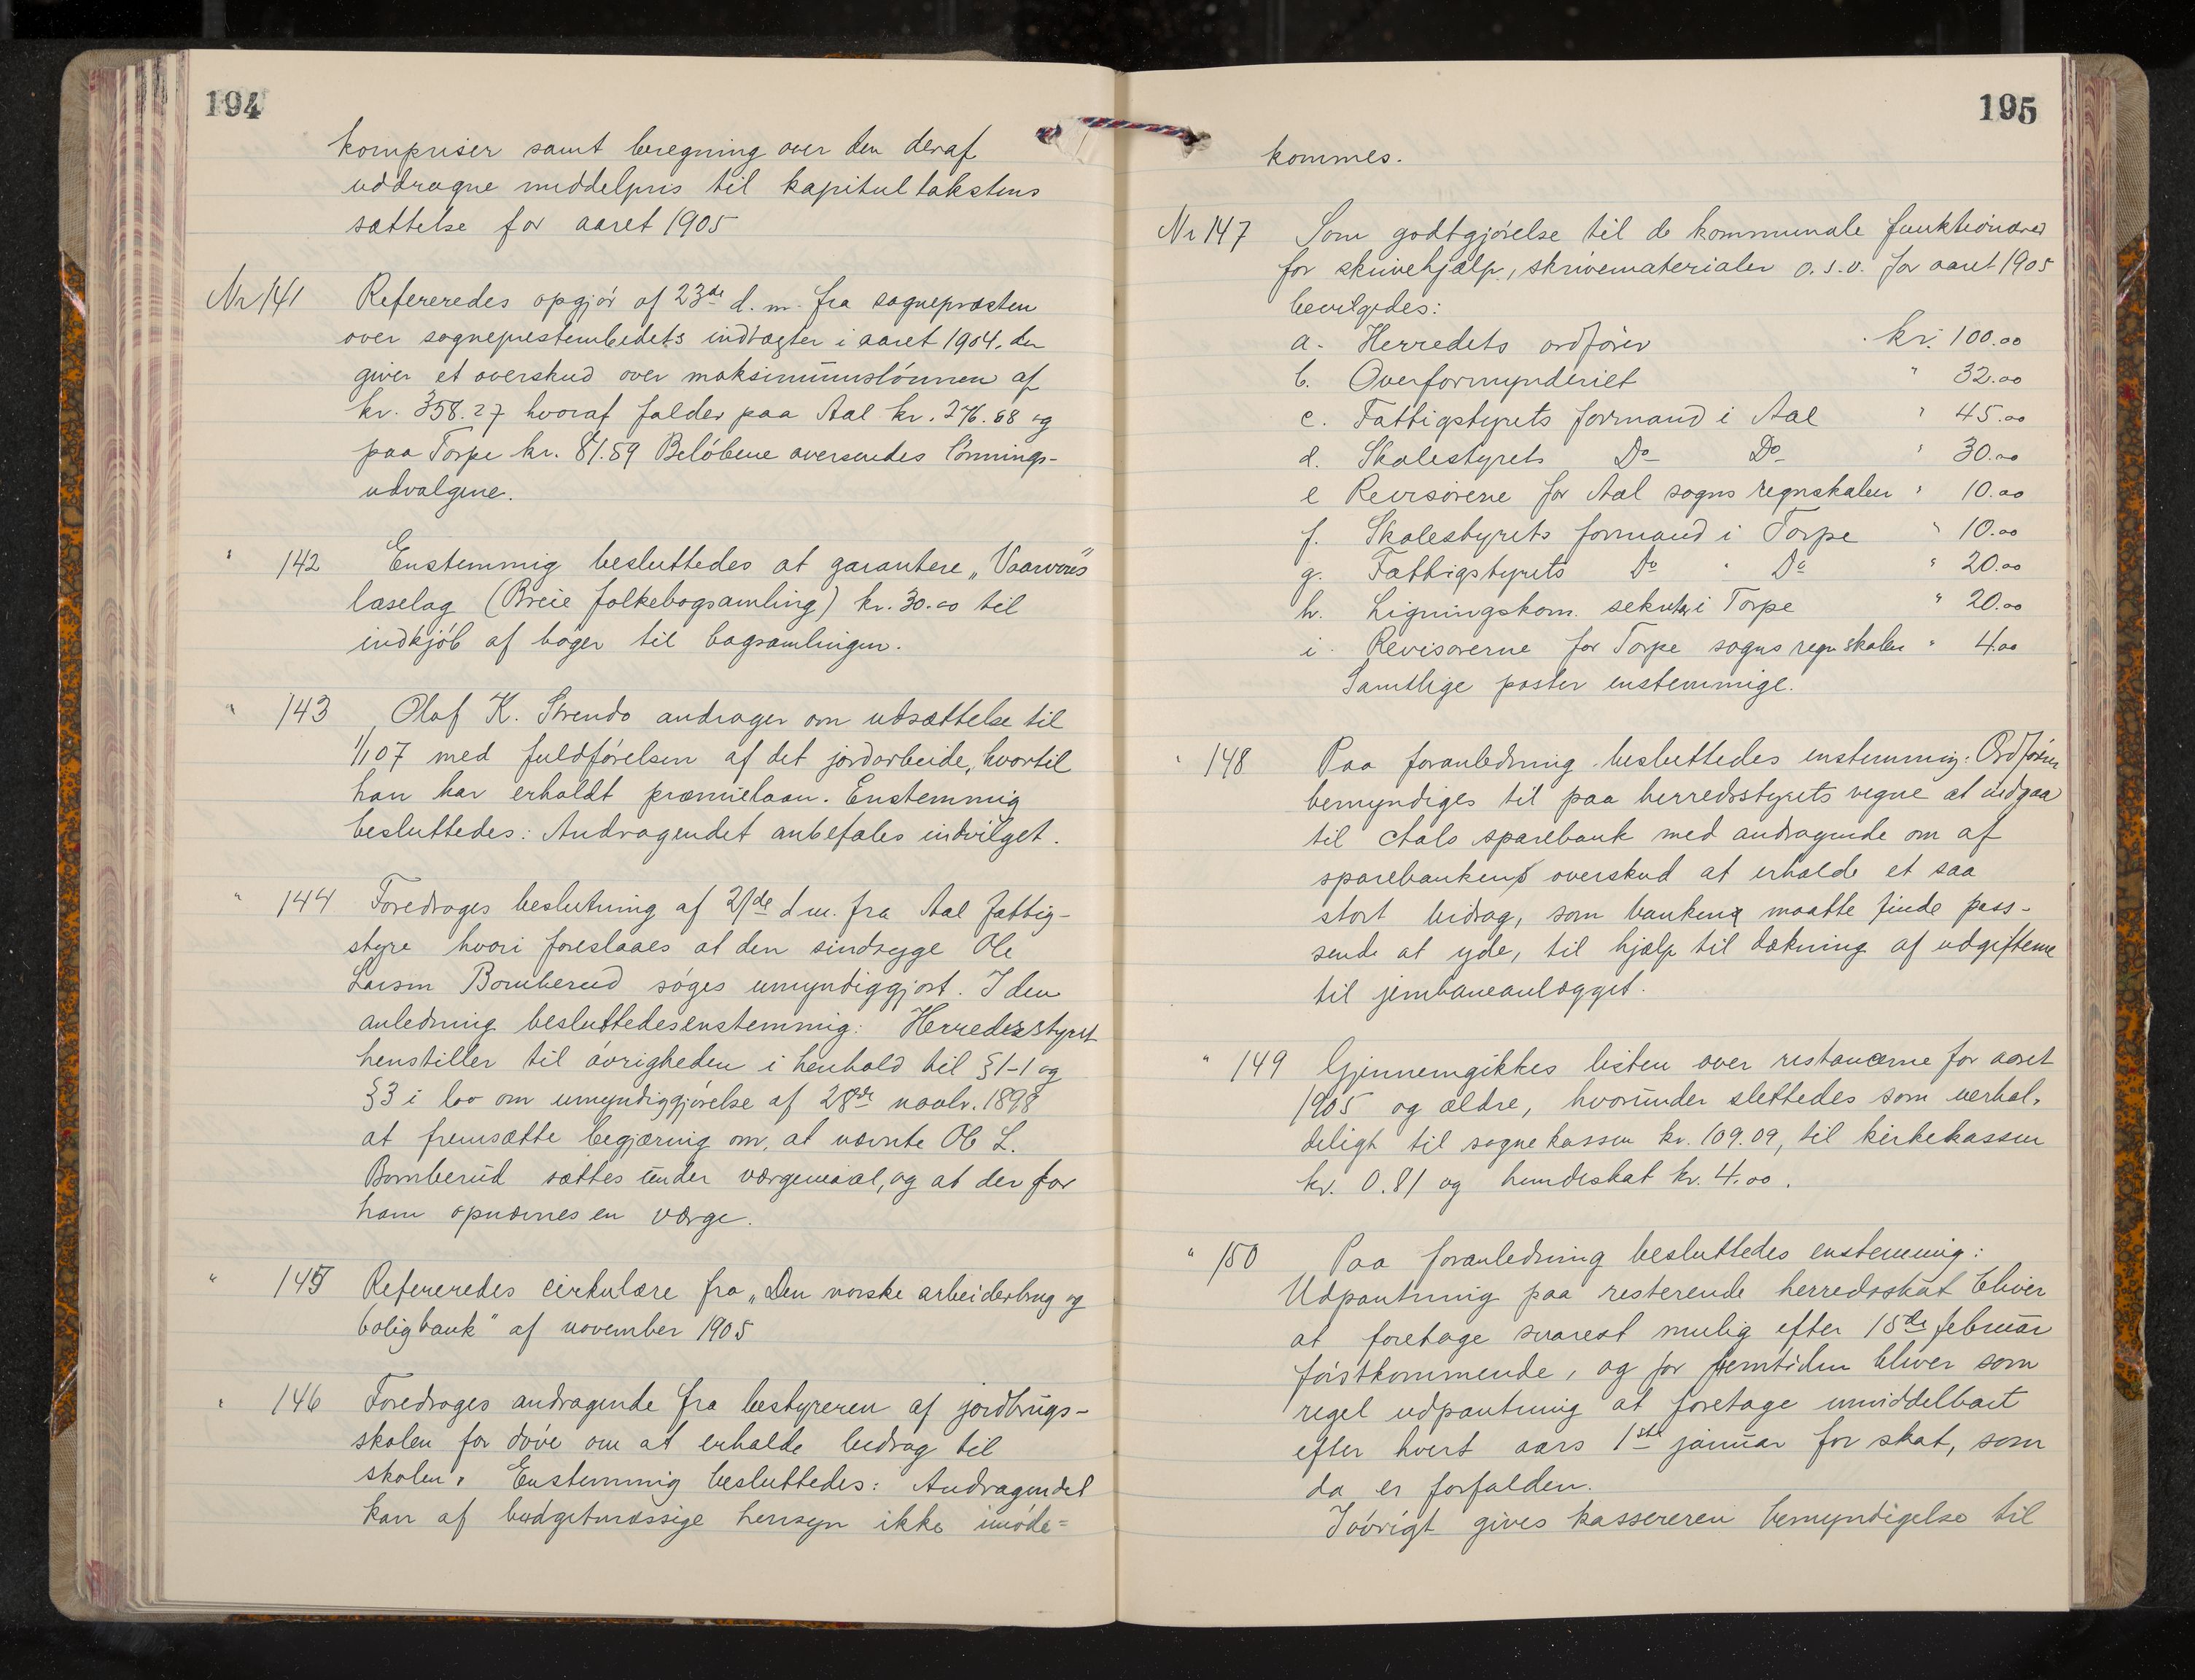 194
kornpriser samt beregning over den deraf
uddragne middelpris til kapitultakstens
sættelse for aaret 1905
Nr 141 Refereredes opgjør af 23de d. m. fra sognepræsten
over sogneprestembedets indtægter i aaret 1904, der
giver et overskud over maksimumslønnen af
kr. 358.27 hvoraf falder paa Aal kr. 276.68 og
paa Torpe kr. 81.59 Beløbene oversendes lønnings-
udvalgene.
" 142 Enstemmig besluttedes at garantere „Vaarvons"
læselag (Breie folkebogsamling) kr. 30.00 til
indkjøb af bøger til bogsamlingen.
" 143 Olaf K. Strendo andrager om udsættelse til
1/1 07 med fuldførelsen af det jordarbeide, hvortil
han har erholdt præmielaan. Enstemmig
besluttedes: Andragendet anbefales indvilget.
" 144 Foredroges beslutning af 21de d m. fra Aal fattig-
styre hvori foreslaaes at den sindsyge Ole
Larsen Bomberud søges umyndiggjort. I den
anledning besluttedes enstemmig: Herredsstyret
henstiller til øvrigheden i henhold til § 1-1 og
§ 3 i lov om umyndiggjørelse af 28de novbr. 1898
at fremsætte begjæring om, at nævnte Ole L.
Bomberud sættes under værgemaal, og at der for
ham opnævnes en værge.
" 145 Refereredes cirkulære fra „Den norske arbeiderbrug og
boligbank" af november 1905
" 146 Foredroges andragende fra bestyreren af jordbrugs-
skolen for døve om at erholde bidrag til
skolen. Enstemmig besluttedes: Andragendet
kan af budgetmæssige hensyn ikke imøde=
195
kommes.
Nr 147 Som godtgjørelse til de kommunale funktionærer
for skrivehjælp, skrivematerialer o. s. v. for aaret 1905
bevilgedes:
a. Herredets ordfører kr. 100.00
b. Overformynderiet " 32.00
c. Fattigstyrets formand i Aal " 45.00
d. Skolestyrets Do Do " 30.00
e Revisorerne for Aal sogns regnskaber " 10.00
f. Skolestyrets formand i Torpe " 10.00
g. Fattigstyrets Do " Do " 20.00
h. Ligningskom. sekretær i Torpe " 20.00
i. Revisorerne for Torpe sogns regnskaber " 4.00
Samtlige poster enstemmige.
" 148 Paa foranledning besluttedes enstemmig: Ordføreren
bemyndiges til paa herredsstyrets vegne at indgaa
til Aals sparebank med andragende om af
sparebankens overskud at erholde et saa
stort bidrag, som banken maatte finde pass-
sende at yde, til hjælp til dækning af udgifterne
til jernbaneanlægget.
" 149 Gjennemgikkes listen over restancerne for aaret
1905 og ældre, hvorunder slettedes som uerhol-
deligt til sognekassen kr. 109.09, til kirkekassen
kr. 0.81 og hundeskat kr. 4.00.
" 150 Paa foranledning besluttedes enstemmig:
Udpantning paa resterende herredsskat bliver
at foretage snarest mulig efter 15de februar
førstkommende, og for fremtiden bliver som
regel udpantning at foretage umiddelbart
efter hvert aars 1ste januar for skat, som
da er forfalden.
Iøvrigt gives kassereren bemyndigelse til